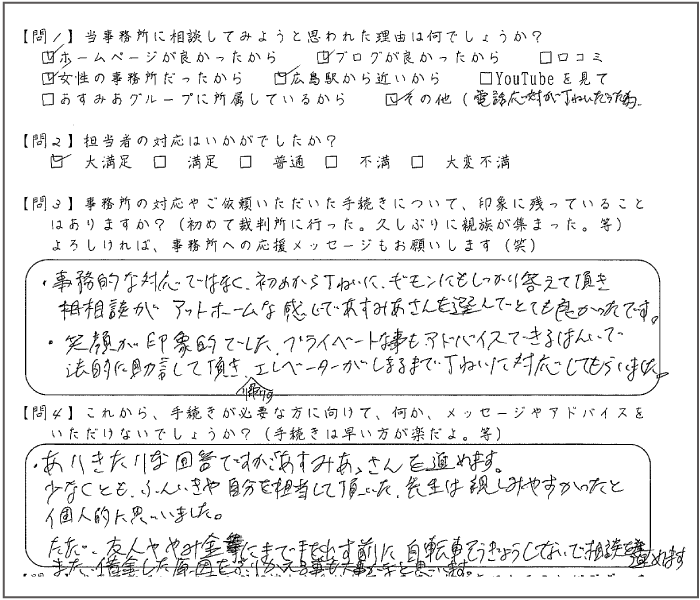 【問1】当事務所に相談してみようと思われた理由は何でしょうか?
☑ホームページが良かったから ☑ブログが良かったから □口コミ
☑女性の事務所だったから ☑広島駅から近いから □YouTubeを見て
□あすみあグループに所属しているから ☑その他(電話応対がていねいだった為
【問2】担当者の対応はいかがでしたか?
☑ 大満足 □ 満足 □ 普通 □ 不満 □ 大変不満
【問3】事務所の対応やご依頼いただいた手続きについて、印象に残っていること
はありますか?(初めて裁判所に行った。久しぶりに親族が集まった。等)
よろしければ、事務所への応援メッセージもお願いします(笑)
・事務的な対応ではなく、初めからていねいに、ギモンにもしっかり答えて頂き
相談が アットホームな感じであすみあさんを選んでとても良かったです。
・笑顔が印象的でした。プライベートな事もアドバイスできるはんいで
法的に助言して頂き、エレベーターがしまるまでていねいに対応してもらいました。
帰り
【問4】これから、手続きが必要な方に向けて、何か、メッセージやアドバイスを
いただけないでしょうか?(手続きは早い方が楽だよ。等)
・ありきたりな回答ですが、あすみあさんを進めます。
少なくとも、ふんいきや自分を担当して頂いた、先生は親しみやすかったと
個人的に思いました。
ただ、友人ややみ金等にまで手を出す前に、自転車そうぎょうしないで相談を進めます
また、借金した原因をふりかえる事も大事かなと思います。